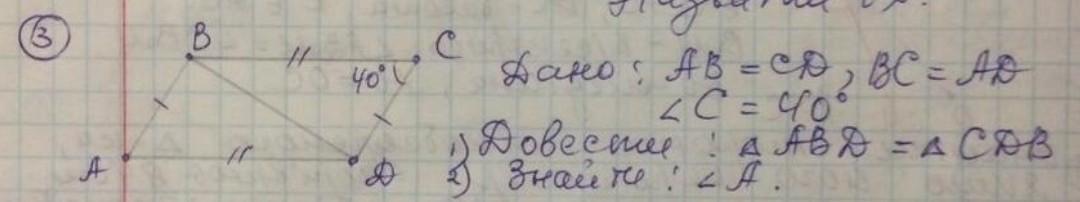 ③
B
C
40°
Дано: AB = CD, BC = AD
∠C = 40°
1) Довести: △ ABD = △ CDB
A
D
2) Знайти: ∠A.